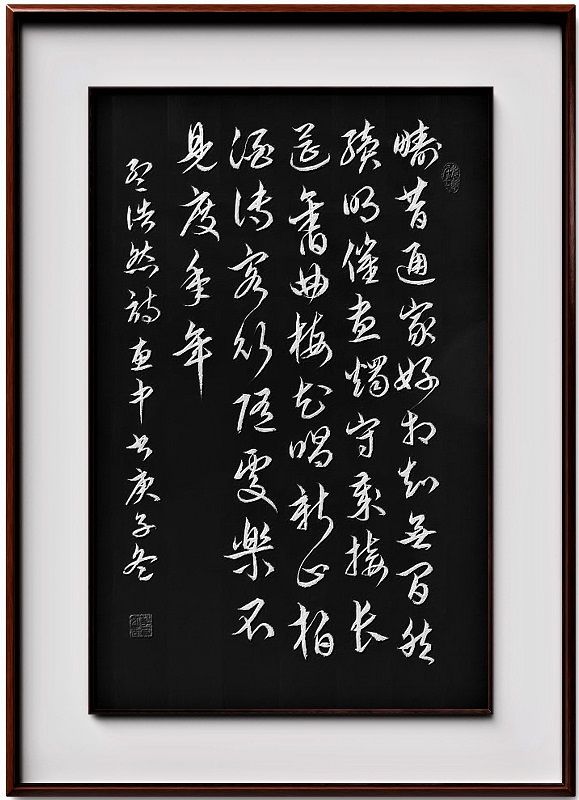 疇昔通家好相知無間然
續明催畫燭守歲接長
筵舊曲梅花唱新正柏
酒傳客行隨處樂不
見度年年
孟浩然詩中书庚子冬